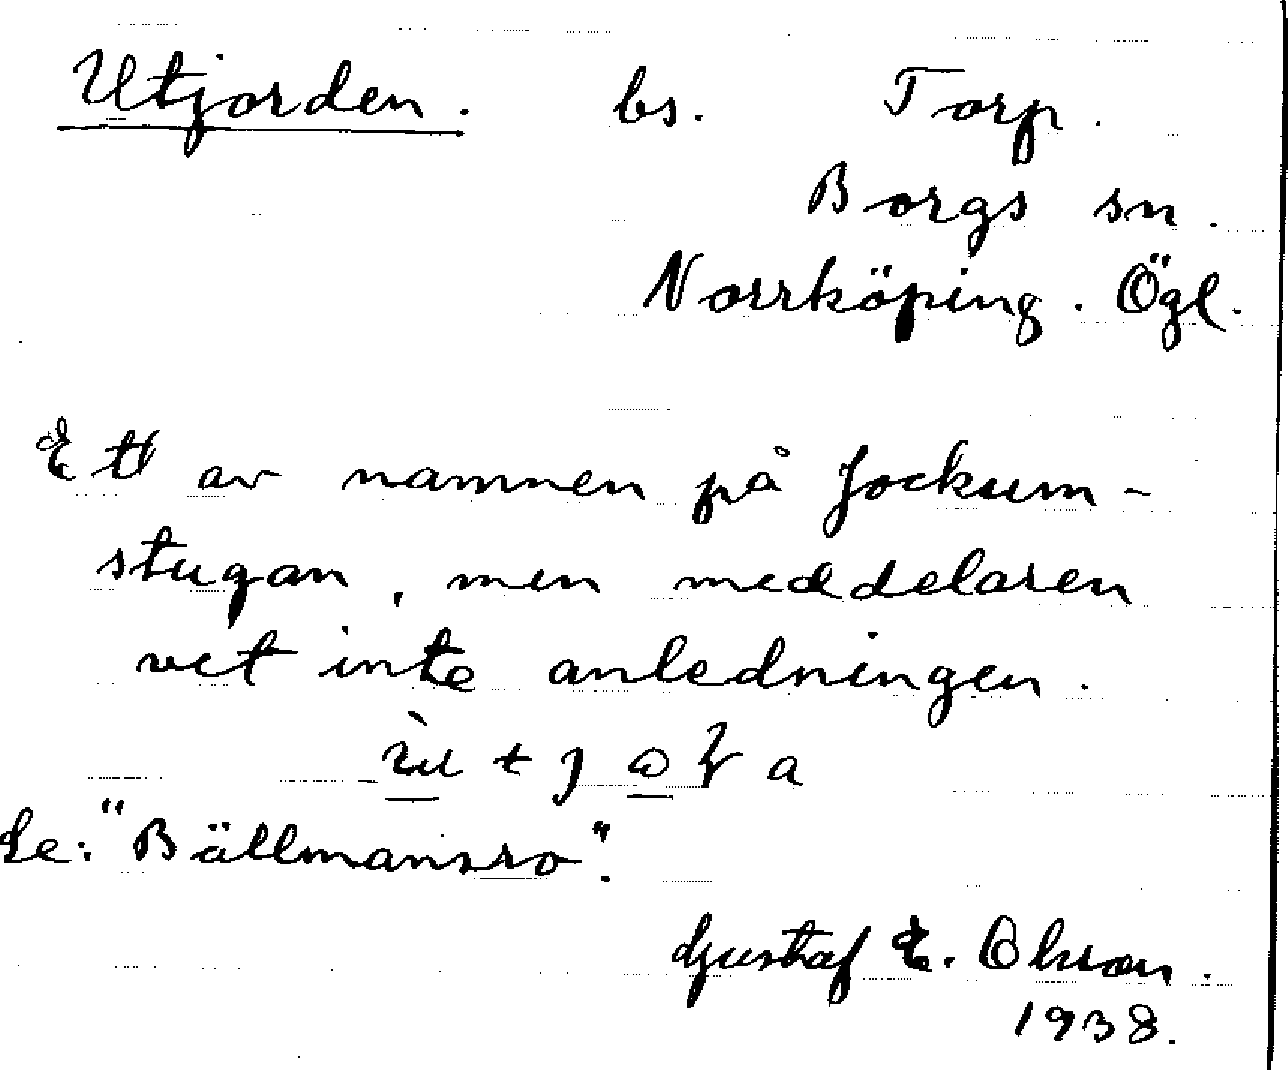 Utjorden. bs. Torp.
Borgs sn.
Norrköping. Ögl.
Ett av namnen på Jockum-
stugan, men meddelaren
vet inte anledningen.
Se: "Bällmansro".
Gustaf E. Olsson.
1938.